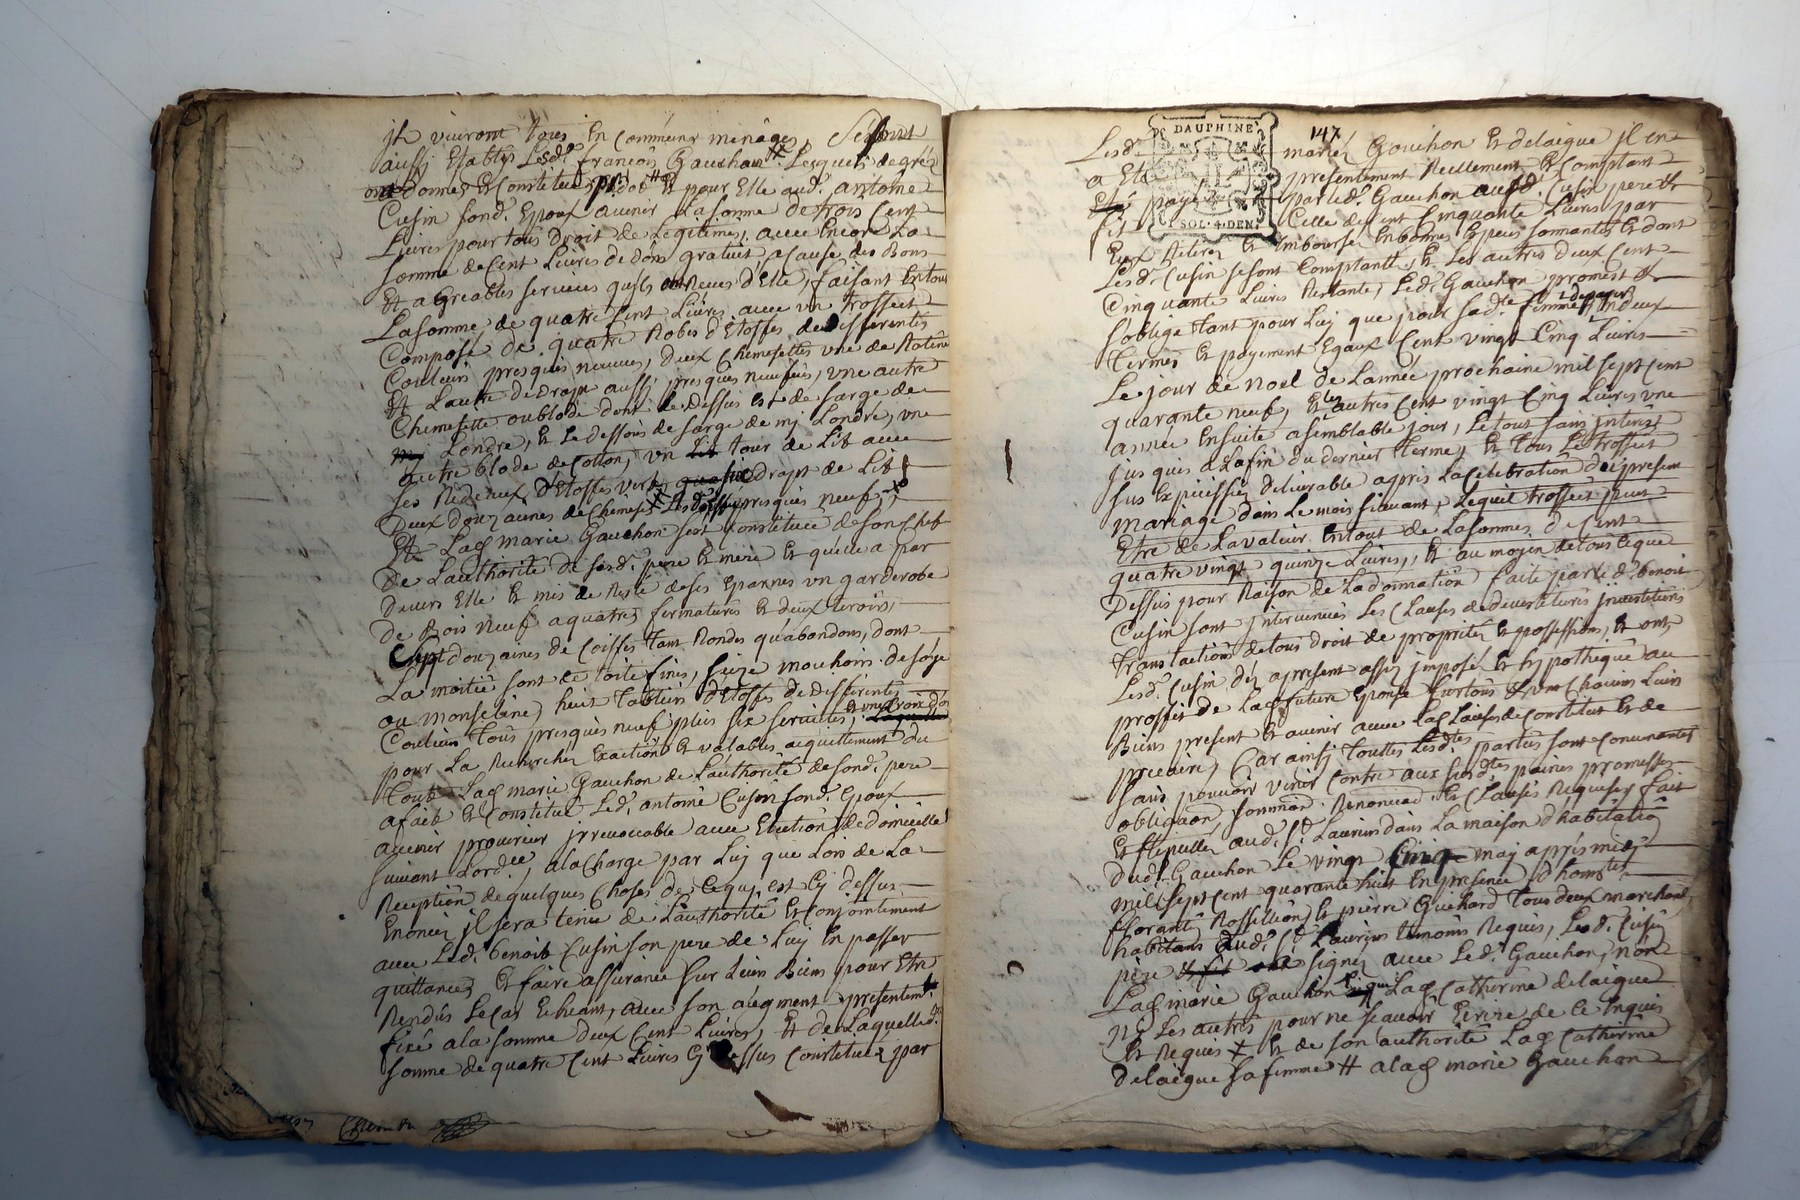 jls vivront tous En Commeung menages, Se sont
aussy Etablys Lesd.s francois Gauchon # Lesquels de grés
ont donnés Et Constitués pr dot # Et pour Elle aud.t antoine
Cusin sond.t Epoux avenir La somme de trois Cent
Livres pour tous droit de Legitimes, avec Encore La
somme de Cent Livres de dons gratuit a Cause des Bons
Et agreables services quils ont Receus d'Elle, faisant En tout
La somme de quatre Cent Livres, avec un trossect
Composé de quatre Robes d'Etoffes de differentes
Couleurs presques neuves, deux Chemisettes une de Ratine
Et L'autre de drapt aussy presques neufves, une autre
Chemisette ou blode dont le dessus Est de sarge de
Londre, Et Le dessous de sarge de mj Londre, une
autre blode de Cotton, un tour de Lit avec
ses Rideaux d'Etoffes verd, drapt de Lit
deux douzaines de Chemises presques neuf,
Et Lad marie Gauchon sest Constituée de son Chef
de L'authorité de sesd.t pere Et mere Et quelle a par
devers Elle Et mis de Resté de ses Eparnes un garderobe
de Bois neuf a quatres fermatures Et deux tiroirs,
sept douzaines de Coiffes tant Rondes qu'abandons, dont
La moitié sont de toile fines, seize mouchoirs de soye
ou monseline, huit Tabliers d'Etoffes de differentes
Couleurs tous presques neuf plus six serviettes, et une Croix d'or
pour La Recherches Exactions Et valables acquittement du
Tout Lad marie Gauchon de L'authorité de sond.t pere
a fait Et Constitué Led.t antoine Cusin sond.t Epoux
avenir procureur jrrevoccable avec Election de domicille
suivant Lord.ce, a la Charge par Luy que Lors de La
Reception de quelques Choses de Ce quj est Cy dessus
Enoncés jl sera tenu de L'authorité Et Conjointement
avec Led.t benoit Cusin son pere de Luy En passer
quittances Et faire assurance sur Leurs Biens pour Etre
Rendus Le Cas Echeant, avec son augment presentem.t
fixé a la somme deux Cent Livres, Et de Laquelle d.te
somme de quatre Cent Livres Cy dessus Constituée par
DAUPHINE
SOL. 4. DEN.
147
Lesd.s mariés Gauchon Et delaigue jl en
a Eté presentement Reellement Et Comptant
payé par led.t Gauchon aud.t Cusin pere Et
fils Celle de Cent Cinquante Livres par
Eux Retirés Et Emboursés En bonnes Especes sonnantes Et dont
Lesd.t Cusin se sont Comptantés, Et Les autres deux Cent
Cinquante Livres Restantes, Led.t Gauchon promest Et
s'oblige tant pour Luy que pour sad.te femme de payer En deux
Termes Et payement Egaux Cent vingt Cinq Livres
Le jour de noel de L'année prochaine mil sept cent
quarante neuf, Et les autres Cent vingt Cinq Livres une
année Ensuite a semblable jour, Le tout sans jnterest
jusques a La fin du dernier Terme, Et tous Le trossect
sus Expeciffiés delivrable aprés La Celebration du present
mariage dans Le mois suivant, Lequel trossect peut
Etre de La valeur En tout de La sommes de Cent
quatre vingt quinze Livres, Et au moyen de tous Ce que
Dessus pour Raison de La donnation faite par led.t benoit
Cusin sont jntervenues Les Clauses de devestitures jnvestitures
translations de tous droit de proprietes Et possessions, Et ont
Lesd.t Cusin dés apresent assis jmposés Et hypothequé au
proffit de Lad future Epouse sur tous Et uns Chacuns Leurs
Biens present Et avenir avec Lad Clauses de Constitut Et de
precaire, Car ainsy Touttes Lesd.tes parties sont Convenantes
sans pouvoir venir Contre aux susd.tes paines promesses
obligaon, sommaon Renonciaon Et Clauses Requises, fait
Et stipullés aud.t S.t Laurens dans La maison d'habitation
dud.t Gauchon Le vingt Cinq may aprés midy
mil sept cent quarante huit En presence d'honnêtes
florant Rossellion Et pierre Guichard tous deux marchands
habitans dud.t S.t Laurens temoins Requis, Lesd.t Cusin
pere signés avec Led.t Gauchon, non
Lad marie Gauchon Lad Catherine delaigue
ny Les autres pour ne scavoir Ecrire de Ce Enquis
Et Requis + Et de son authorité Lad Catherine
delaigue sa femme # a lad marie Gauchon